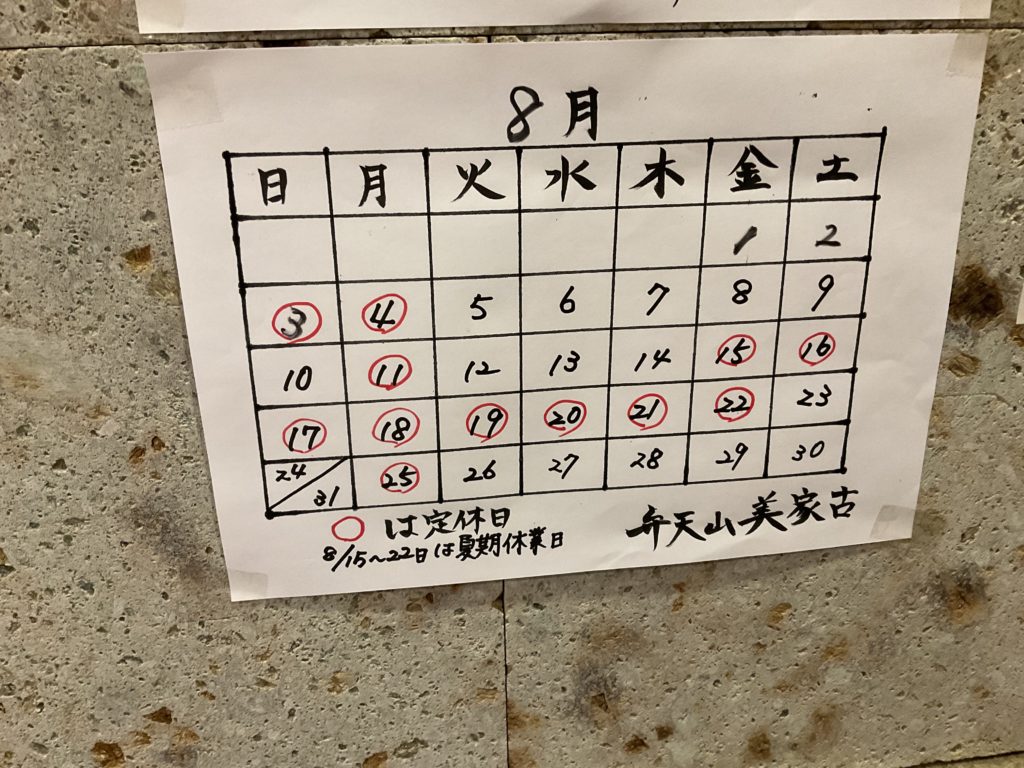 8月
日 月 火 水 木 金 土
1 2
3 4 5 6 7 8 9
10 11 12 13 14 15 16
17 18 19 20 21 22 23
24/31 25 26 27 28 29 30
○は定休日
8/15~22日は夏期休業日
弁天山美家古